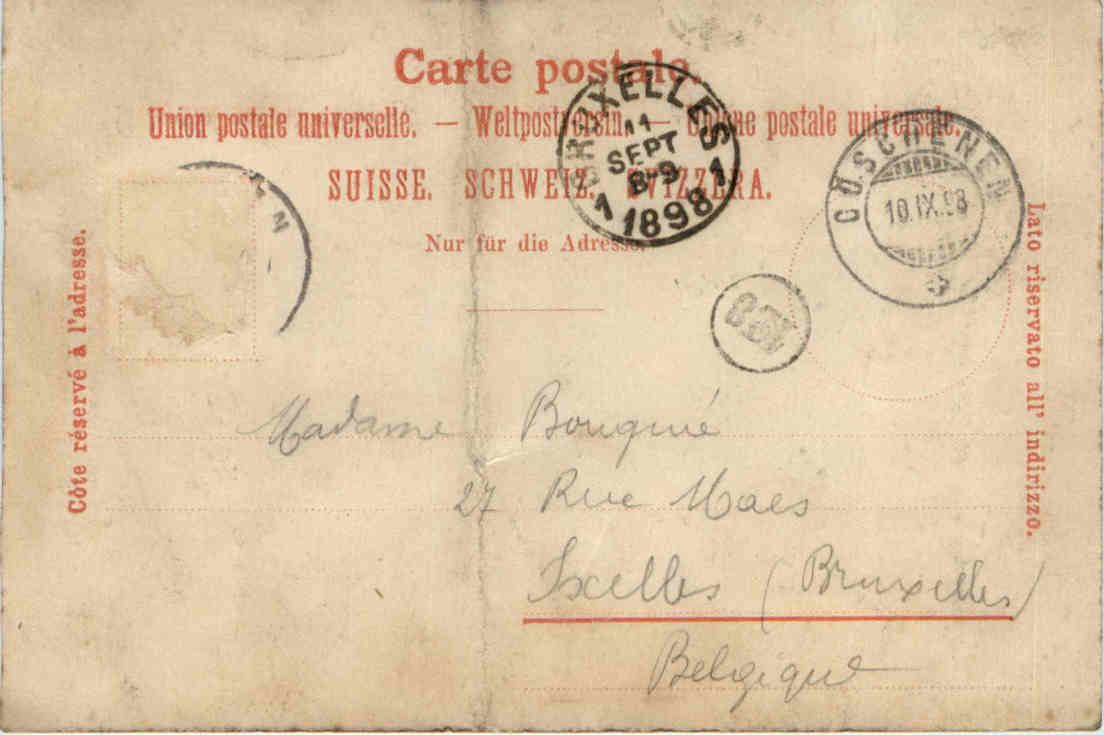 Carte postale.
Union postale universelle. — Weltpostverein. — Unione postale universale.
SUISSE. SCHWEIZ. SVIZZERA.
Nur für die Adresse.
Côte réservé à l'adresse.
Lato riservato all' indirizzo.
BRUXELLES
11
SEPT
8-9
1 1898 1
GÖSCHENEN
10.IX.98
EN
Madame Bouquié
27 Rue Maes
Ixelles (Bruxelles)
Belgique